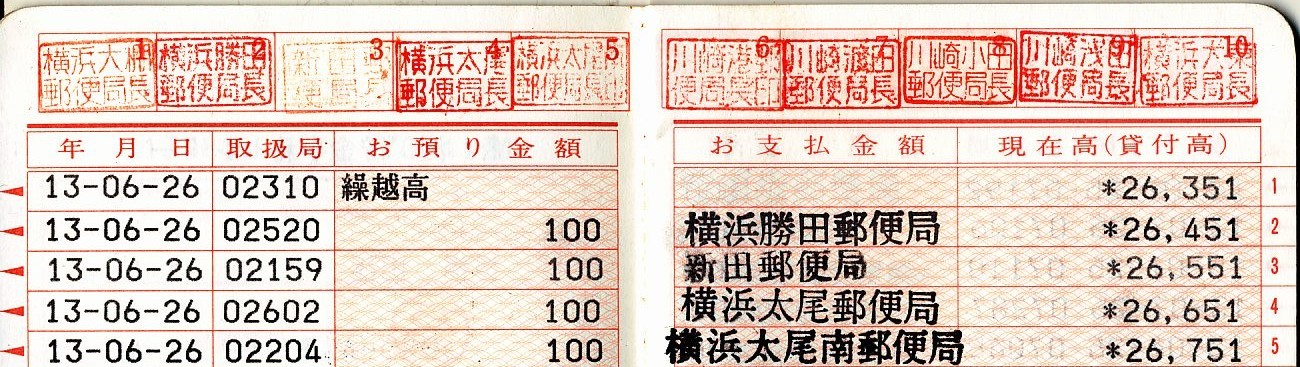 1 2 3 4 5 6 7 8 9 10
横浜大棚郵便局長
横浜勝田郵便局長
新田
便局
横浜太尾郵便局長
横浜太尾
郵便局長
川崎港
郵便局長
川崎
郵便局長
川崎小田郵便局長
川崎浅田郵便局長
横浜大
郵便局長
年月日 取扱局 お預り金額 お支払金額 現在高(貸付高)
13-06-26 02310 繰越高 *26,351 1
13-06-26 02520 100 横浜勝田郵便局 *26,451 2
13-06-26 02159 100 新田郵便局 *26,551 3
13-06-26 02602 100 横浜太尾郵便局 *26,651 4
13-06-26 02204 100 横浜太尾南郵便局 *26,751 5